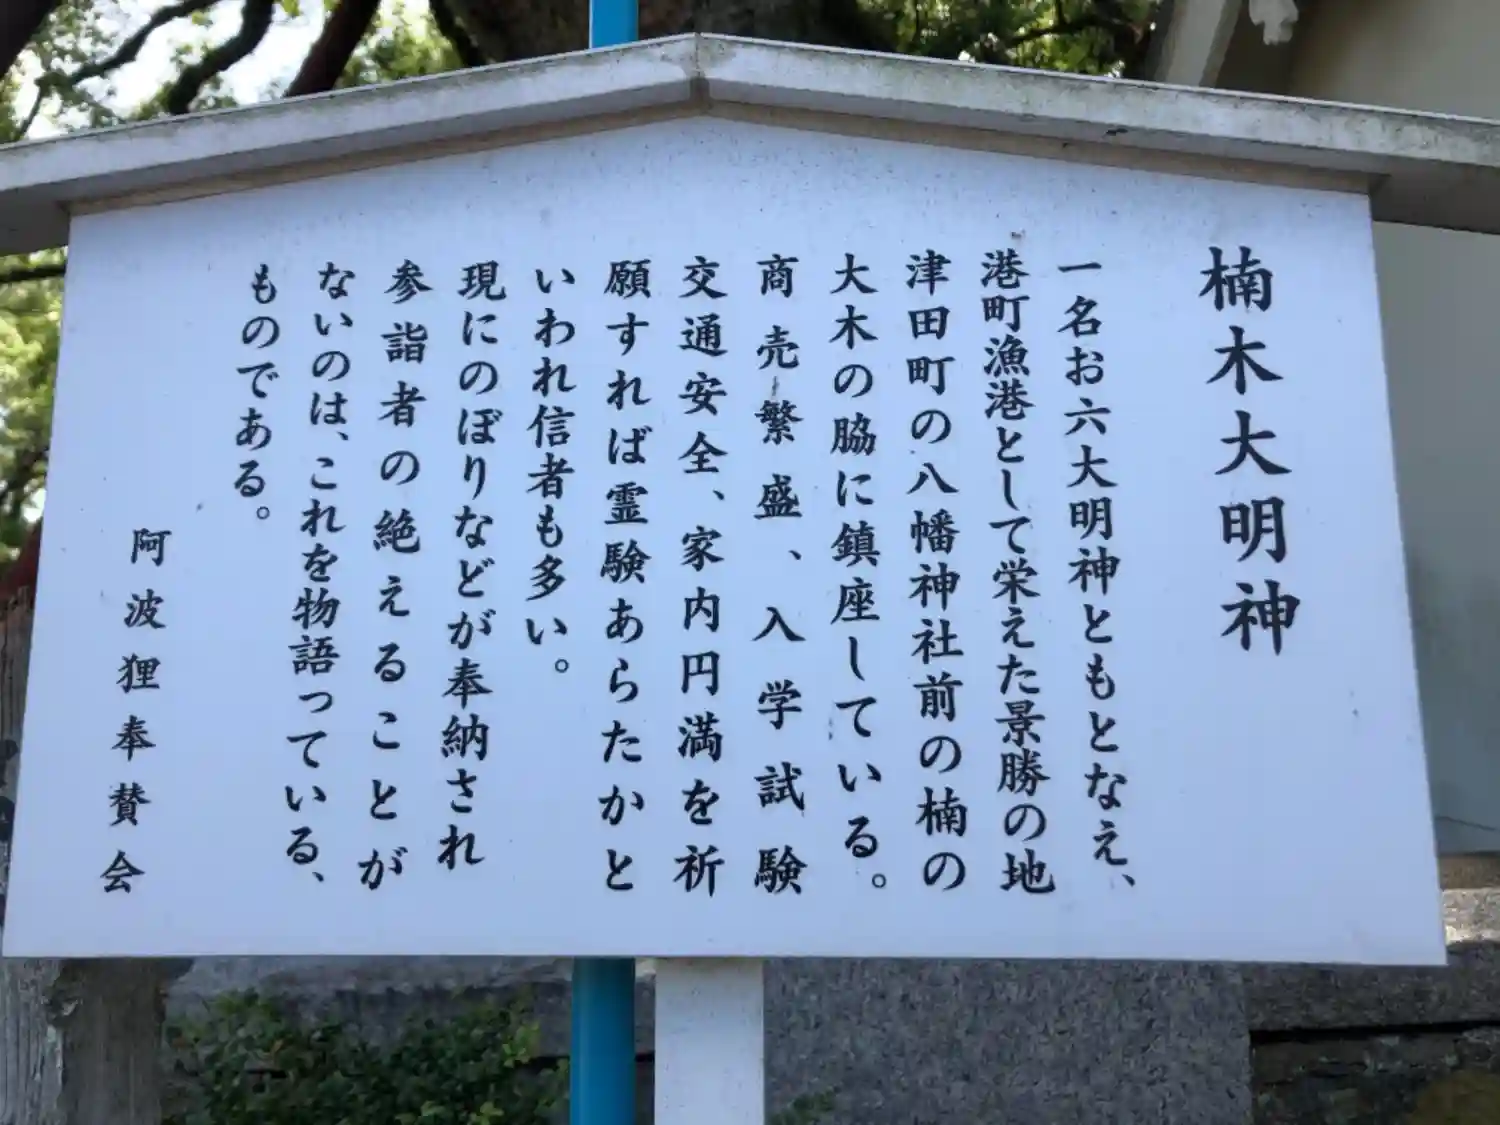 楠木大明神
一名お六大明神ともとなえ、
港町漁港として栄えた景勝の地
津田町の八幡神社前の楠の
大木の脇に鎮座している。
商売繁盛、入学試験
交通安全、家内円満を祈
願すれば霊験あらたかと
いわれ信者も多い。
現にのぼりなどが奉納され
参詣者の絶えることが
ないのは、これを物語っている、
ものである。
阿波狸奉賛会